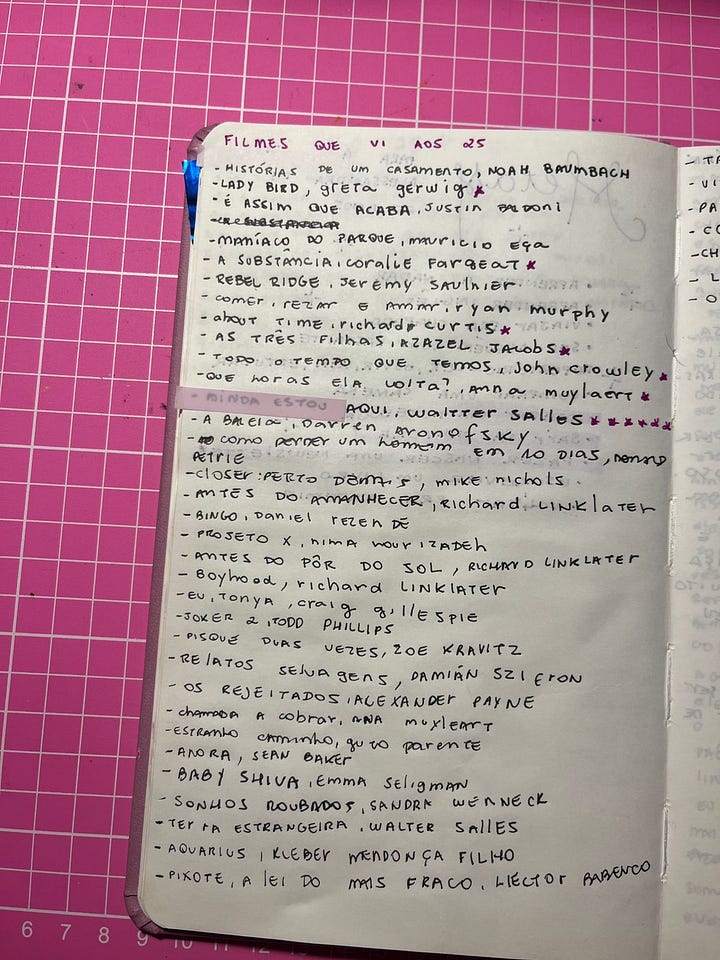 FILMES QUE VI AOS 25
- HISTÓRIAS DE UM CASAMENTO, NOAH BAUMBACH
- LADY BIRD, greta gerwig ★
- É ASSIM QUE ACABA, JUSTIN BALDONI
- MANÍACO DO PARQUE, MAURICIO EÇA
- A SUBSTÂNCIA, CORALIE FARGEAT ★
- REBEL RIDGE, JEREMY SAULNIER
- COMER, REZAR E AMAR, RYAN MURPHY
- about TIME, richard CURTIS ★
- AS TRÊS FILHAS, AZAZEL JACOBS ★
- TODO O TEMPO QUE TEMOS, JOHN CROWLEY ★
- QUE HORAS ELA VOLTA?, ANNA MUYLAERT ★
- MINDA ESTOU AQUI, WALTTER SALLES ★★★★★★
- A BALEIA, DARREN ARONOFSKY
- COMO PERDER UM HOMEM EM 10 DIAS, DONALD
PETRIE
- CLOSER: PERTO DEMAIS, MIKE NICHOLS
- ANTES DO AMANHECER, RICHARD LINKLATER
- BINGO, DANIEL REZENDE
- PROJETO X, NIMA NOURIZADEH
- ANTES DO PÔR DO SOL, RICHARD LINKLATER
- BOYHOOD, RICHARD LINKLATER
- EU, TONYA, CRAIG GILLESPIE
- JOKER 2, TODD PHILLIPS
- PISQUE DUAS VEZES, ZOE KRAVITZ
- RELATOS SELVAGENS, DAMIÁN SZIFRON
- OS REJEITADOS, ALEXANDER PAYNE
- CHAMADA A COBRAR, ANA MUYLEART
- ESTRANHO CAMINHO, GUTO PARENTE
- ANORA, SEAN BAKER
- BABY SHIVA, EMMA SELIGMAN
- SONHOS ROUBADOS, SANDRA WERNECK
- TERRA ESTRANGEIRA, WALTER SALLES
- AQUARIUS, KLEBER MENDONÇA FILHO
- PIXOTE, A LEI DO MAIS FRACO, HECTOR BABENCO
- TA
- VI
- PA
- CO
- CH
- L
- O
6 7 8 9 10 11 12